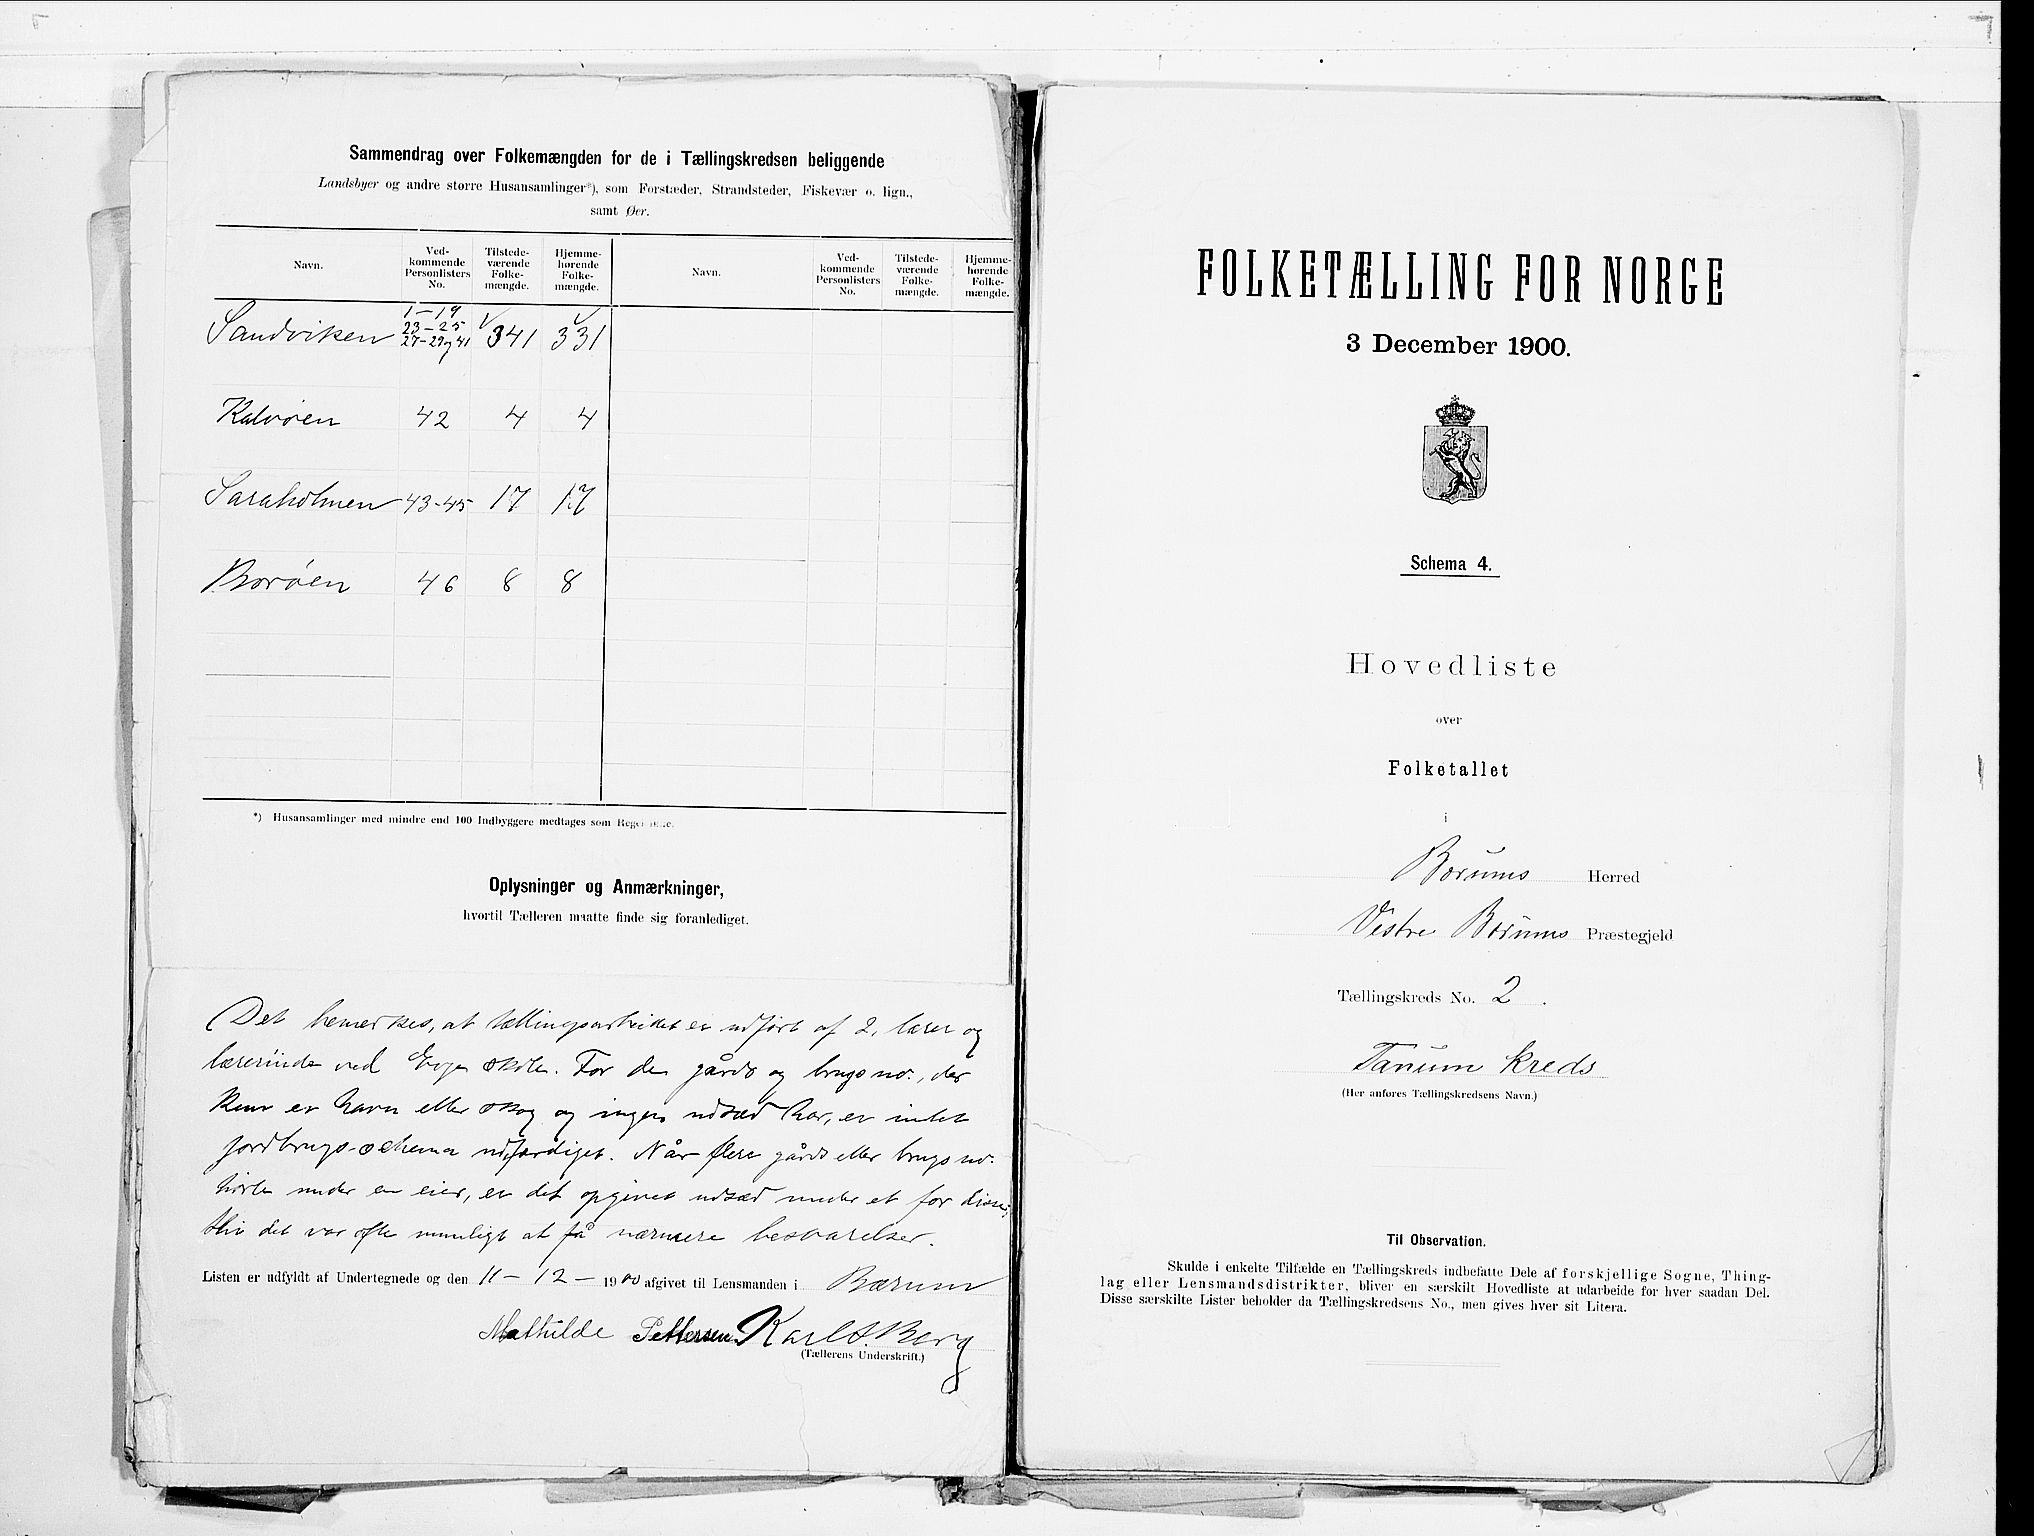 Sammendrag over Folkemængden for de i Tællingskredsen beliggende
Landsbyer og andre større Husansamlinger*), som Forstæder, Strandsteder, Fiskevær o. lign.,
samt Øer.
Navn. Ved-kommende Personlisters No. Tilstede-værende Folke-mængde. Hjemme-hørende Folke-mængde. Navn. Ved-kommende Personlisters No. Tilstede-værende Folke-mængde. Hjemme-hørende Folke-mængde.
1-19
Sandviken 23-25 341 331
27-29 og 41
Kalvøen 42 4 4
Saraholmen 43-45 17 17
Borøen 46 8 8
*) Husansamlinger med mindre end 100 Indbyggere medtages som Regel ikke.
Oplysninger og Anmærkninger,
hvortil Tælleren maatte finde sig foranlediget.
Det bemerkes, at tællingsarbeidet er udført af 2, lærer og
lærerinde ved Evje skole. For de gårds og brugs no., der
kun er havn eller skog og ingen udsæd har, er intet
jordbrugs-schema udfærdiget. Når flere gårds eller brugs no.
hørte under en eier, er det opgivet udsæd under et for disse,
thi det var ofte umuligt at få nærmere besvarelser.
Listen er udfyldt af Undertegnede og den 11-12-1900 afgivet til Lensmanden i Bærum
Mathilde Pettersen. Karl A. Berg
(Tællerens Underskrift.)
FOLKETÆLLING FOR NORGE
3 December 1900.
Schema 4.
Hovedliste
over
Folketallet
i
Bærums Herred
Vestre Bærums Præstegjeld
Tællingskreds No. 2.
Tanum kreds
(Her anføres Tællingskredsens Navn.)
Til Observation.
Skulde i enkelte Tilfælde en Tællingskreds indbefatte Dele af forskjellige Sogne, Thing-
lag eller Lensmandsdistrikter, bliver en særskilt Hovedliste at udarbeide for hver saadan Del.
Disse særskilte Lister beholder da Tællingskredsens No., men gives hver sit Litera.